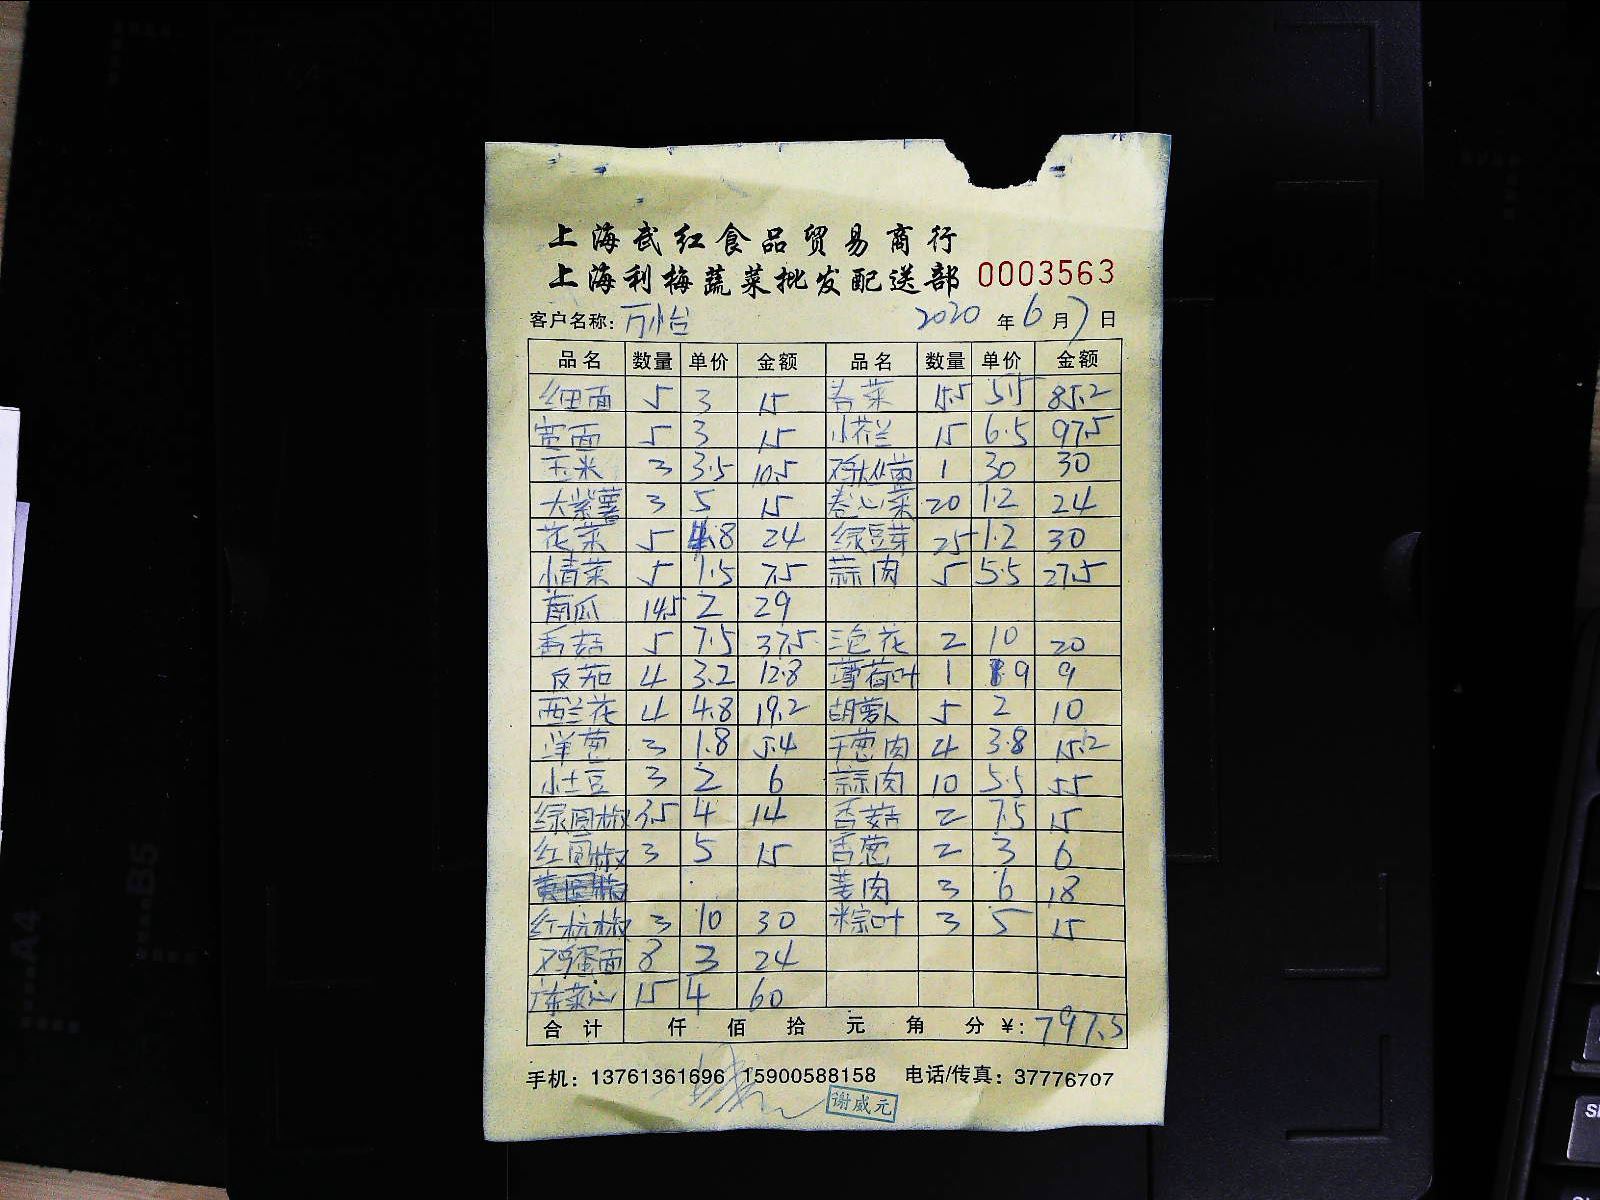 上海武红食品贸易商行
上海利梅蔬菜批发配送部 0003563
客户名称: 万怡 2020 年 6 月 7 日
品名 数量 单价 金额 品名 数量 单价 金额
细面 5 3 15 卷菜 15.5 5.5 85.2
宽面 5 3 15 小芥兰 15 6.5 97.5
玉米 3 3.5 10.5 1 30 30
大紫薯 3 5 15 卷心菜 20 1.2 24
花菜 5 4.8 24 绿豆芽 25 1.2 30
小青菜 5 1.5 7.5 蒜肉 5 5.5 27.5
南瓜 14.5 2 29
香菇 5 7.5 37.5 三色花 2 10 20
反茄 4 3.2 12.8 薄荷叶 1 9 9
西兰花 4 4.8 19.2 胡萝卜 5 2 10
洋葱 3 1.8 5.4 干葱肉 4 3.8 15.2
小土豆 3 2 6 蒜肉 10 5.5 55
绿圆椒 3.5 4 14 香菇 2 7.5 15
红圆椒 3 5 15 香葱 2 3 6
姜肉 3 6 18
红杭椒 3 10 30 粽叶 3 5 15
鸡蛋面 8 3 24
广东菜心 15 4 60
合计 仟 佰 拾 元 角 分 ¥: 797.5
手机: 13761361696 15900588158 电话/传真: 37776707
谢威元
A4
B5